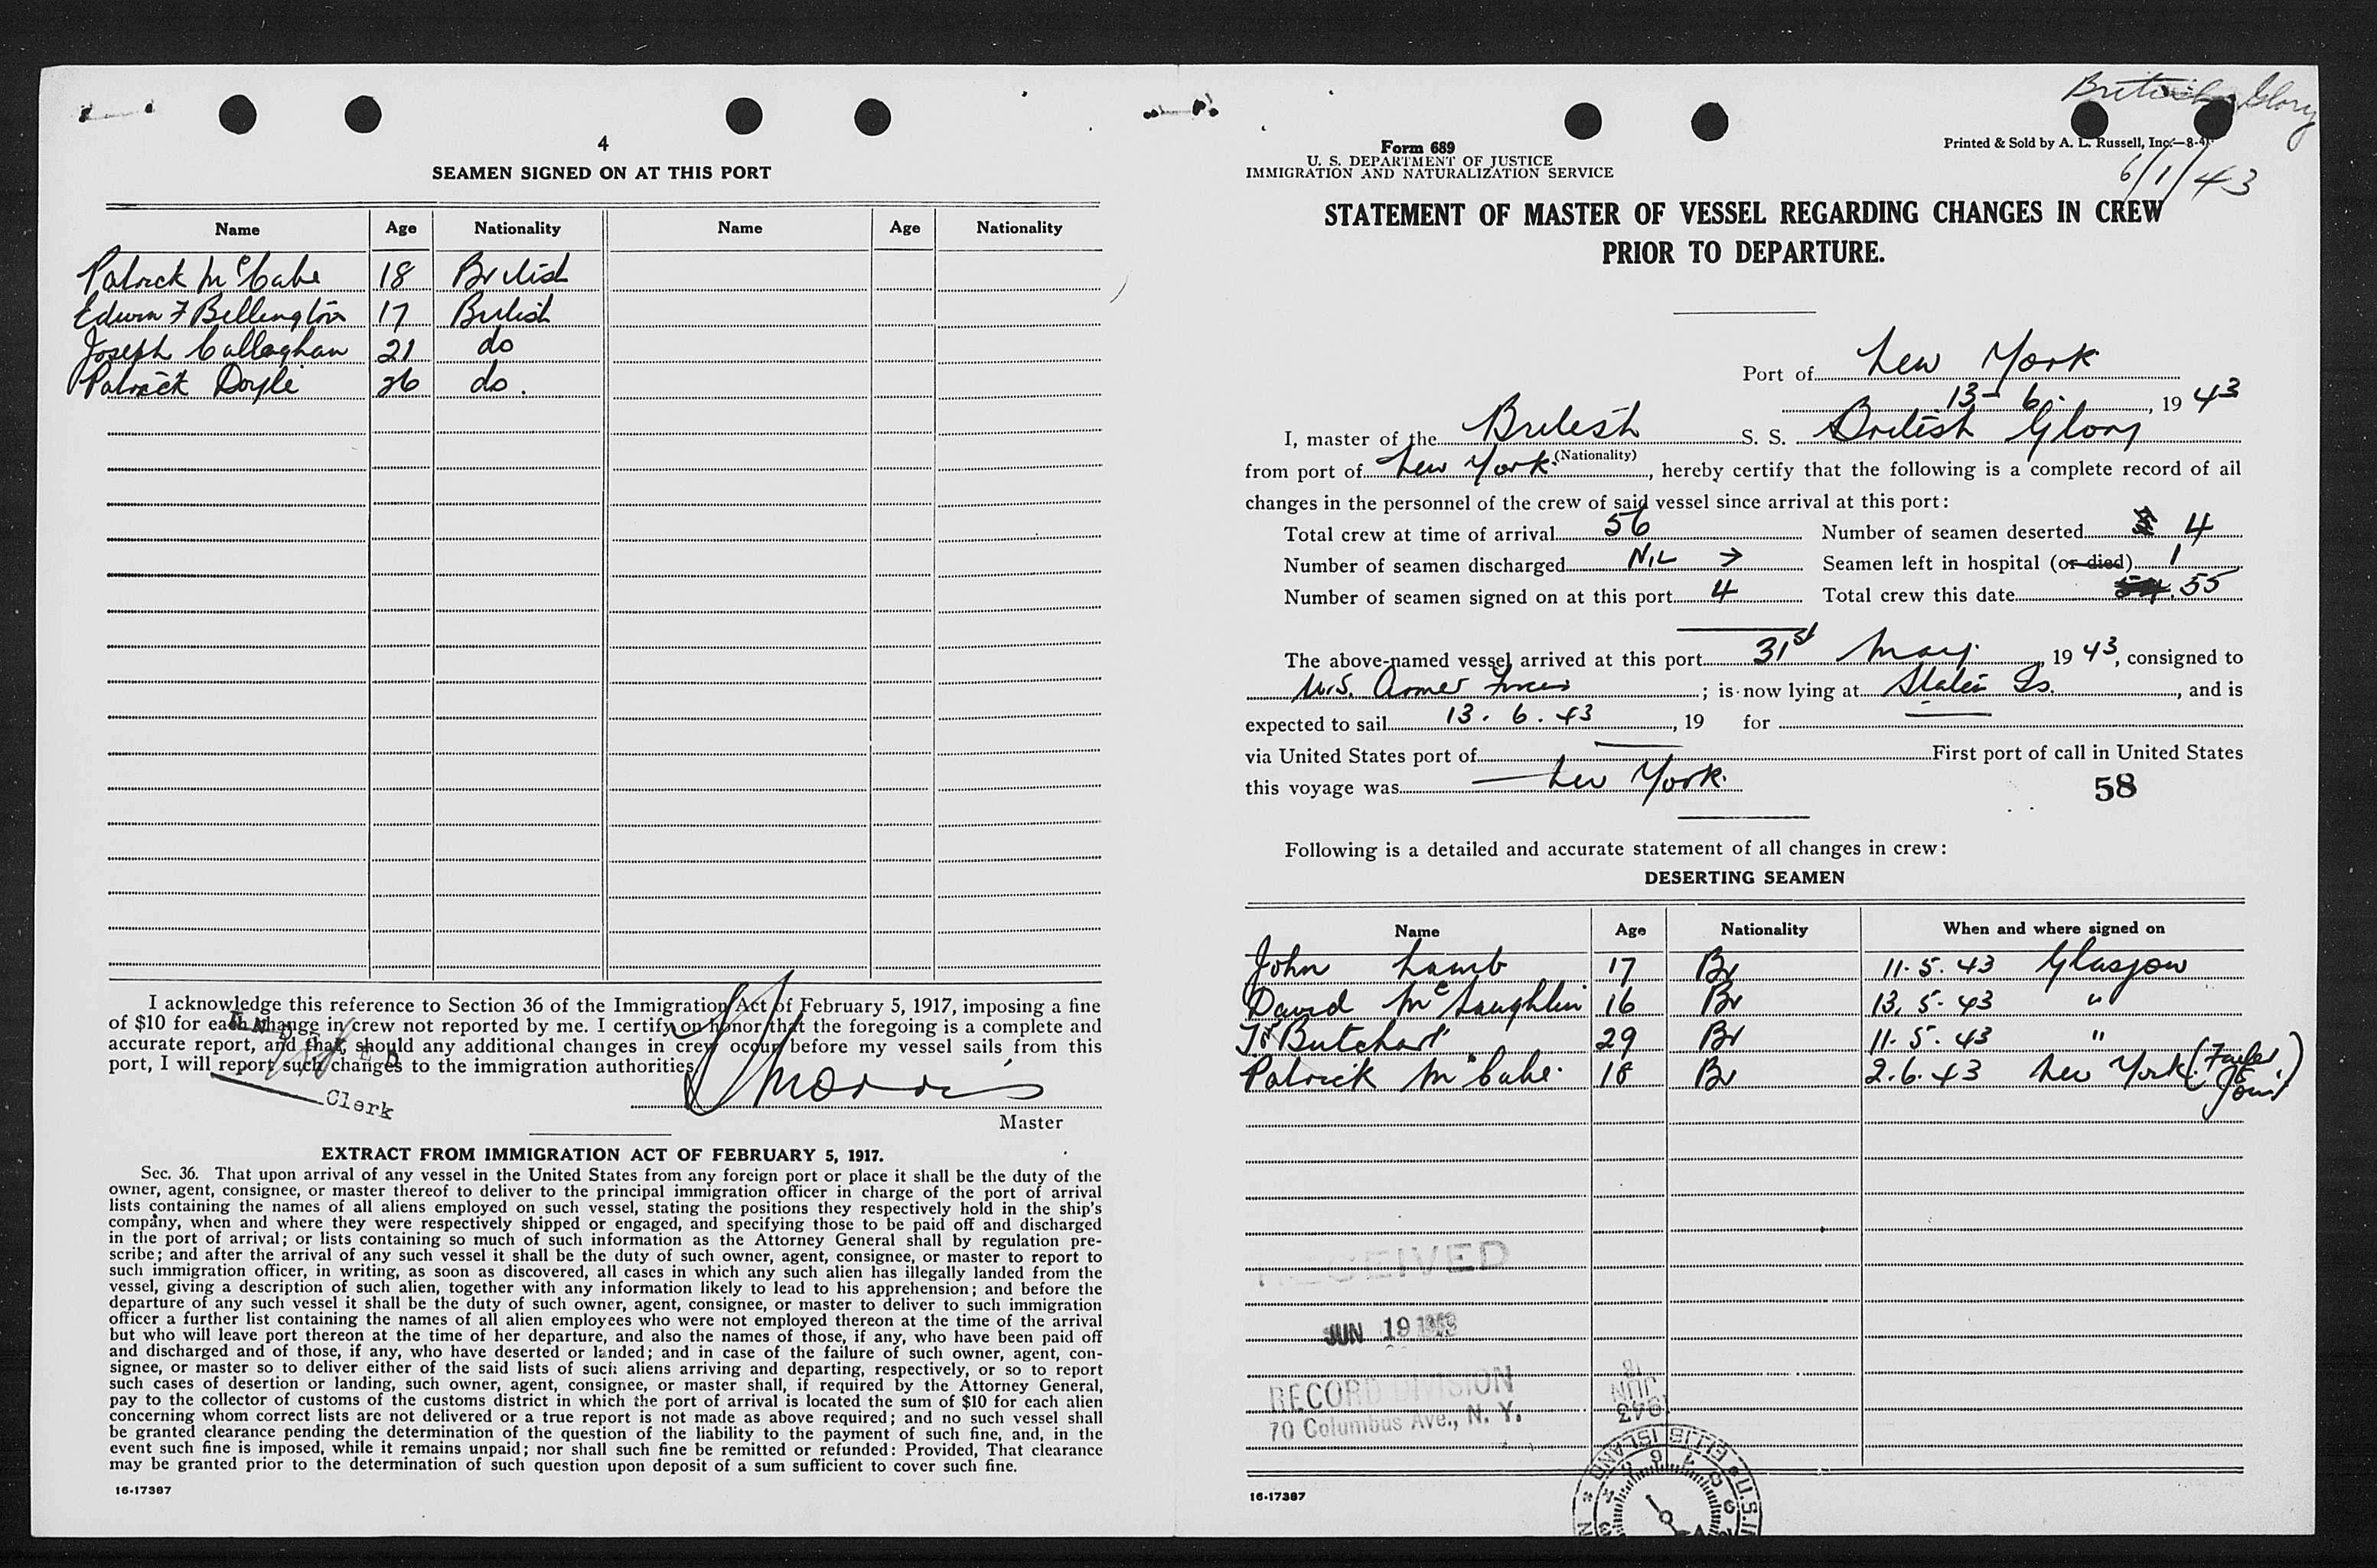 4
SEAMEN SIGNED ON AT THIS PORT
Name Age Nationality Name Age Nationality
Patrick McCabe 18 British
Edwin F Bellington 17 British
Joseph Callaghan 21 do
Patrick Doyle 26 do.
I acknowledge this reference to Section 36 of the Immigration Act of February 5, 1917, imposing a fine
of $10 for each change in crew not reported by me. I certify on honor that the foregoing is a complete and
accurate report, and that, should any additional changes in crew occur before my vessel sails from this
port, I will report such changes to the immigration authorities.
Clerk
Morris
Master
EXTRACT FROM IMMIGRATION ACT OF FEBRUARY 5, 1917.
Sec. 36. That upon arrival of any vessel in the United States from any foreign port or place it shall be the duty of the
owner, agent, consignee, or master thereof to deliver to the principal immigration officer in charge of the port of arrival
lists containing the names of all aliens employed on such vessel, stating the positions they respectively hold in the ship's
company, when and where they were respectively shipped or engaged, and specifying those to be paid off and discharged
in the port of arrival; or lists containing so much of such information as the Attorney General shall by regulation pre-
scribe; and after the arrival of any such vessel it shall be the duty of such owner, agent, consignee, or master to report to
such immigration officer, in writing, as soon as discovered, all cases in which any such alien has illegally landed from the
vessel, giving a description of such alien, together with any information likely to lead to his apprehension; and before the
departure of any such vessel it shall be the duty of such owner, agent, consignee, or master to deliver to such immigration
officer a further list containing the names of all alien employees who were not employed thereon at the time of the arrival
but who will leave port thereon at the time of her departure, and also the names of those, if any, who have been paid off
and discharged and of those, if any, who have deserted or landed; and in case of the failure of such owner, agent, con-
signee, or master so to deliver either of the said lists of such aliens arriving and departing, respectively, or so to report
such cases of desertion or landing, such owner, agent, consignee, or master shall, if required by the Attorney General,
pay to the collector of customs of the customs district in which the port of arrival is located the sum of $10 for each alien
concerning whom correct lists are not delivered or a true report is not made as above required; and no such vessel shall
be granted clearance pending the determination of the question of the liability to the payment of such fine, and, in the
event such fine is imposed, while it remains unpaid; nor shall such fine be remitted or refunded: Provided, That clearance
may be granted prior to the determination of such question upon deposit of a sum sufficient to cover such fine.
16-17387
British Glory
Form 689
Printed & Sold by A. L. Russell, Inc.—8-41
U. S. DEPARTMENT OF JUSTICE
IMMIGRATION AND NATURALIZATION SERVICE
6/1/43
STATEMENT OF MASTER OF VESSEL REGARDING CHANGES IN CREW
PRIOR TO DEPARTURE.
Port of New York
13-6-, 19 43
I, master of the British S. S. British Glory
(Nationality)
from port of New York, hereby certify that the following is a complete record of all
changes in the personnel of the crew of said vessel since arrival at this port:
Total crew at time of arrival 56 Number of seamen deserted 4
Number of seamen discharged NIL → Seamen left in hospital (or died) 1
Number of seamen signed on at this port 4 Total crew this date 55
The above-named vessel arrived at this port 31st May, 19 43, consigned to
U.S. Armed Forces; is now lying at Staten Is., and is
expected to sail 13. 6. 43, 19 for
via United States port of First port of call in United States
this voyage was New York.
58
Following is a detailed and accurate statement of all changes in crew:
DESERTING SEAMEN
Name Age Nationality When and where signed on
John Lamb 17 Br 11. 5. 43 Glasgow
David McLaughlin 16 Br 13. 5. 43 "
Butchart 29 Br 11. 5. 43 "
Patrick McCabe. 18 Br 2. 6. 43 New York (Failed to Join)
RECEIVED
JUN 19 1943
RECORD DIVISION
70 Columbus Ave., N. Y.
1943
JUN
18
ELLIS ISLAND
16-17387